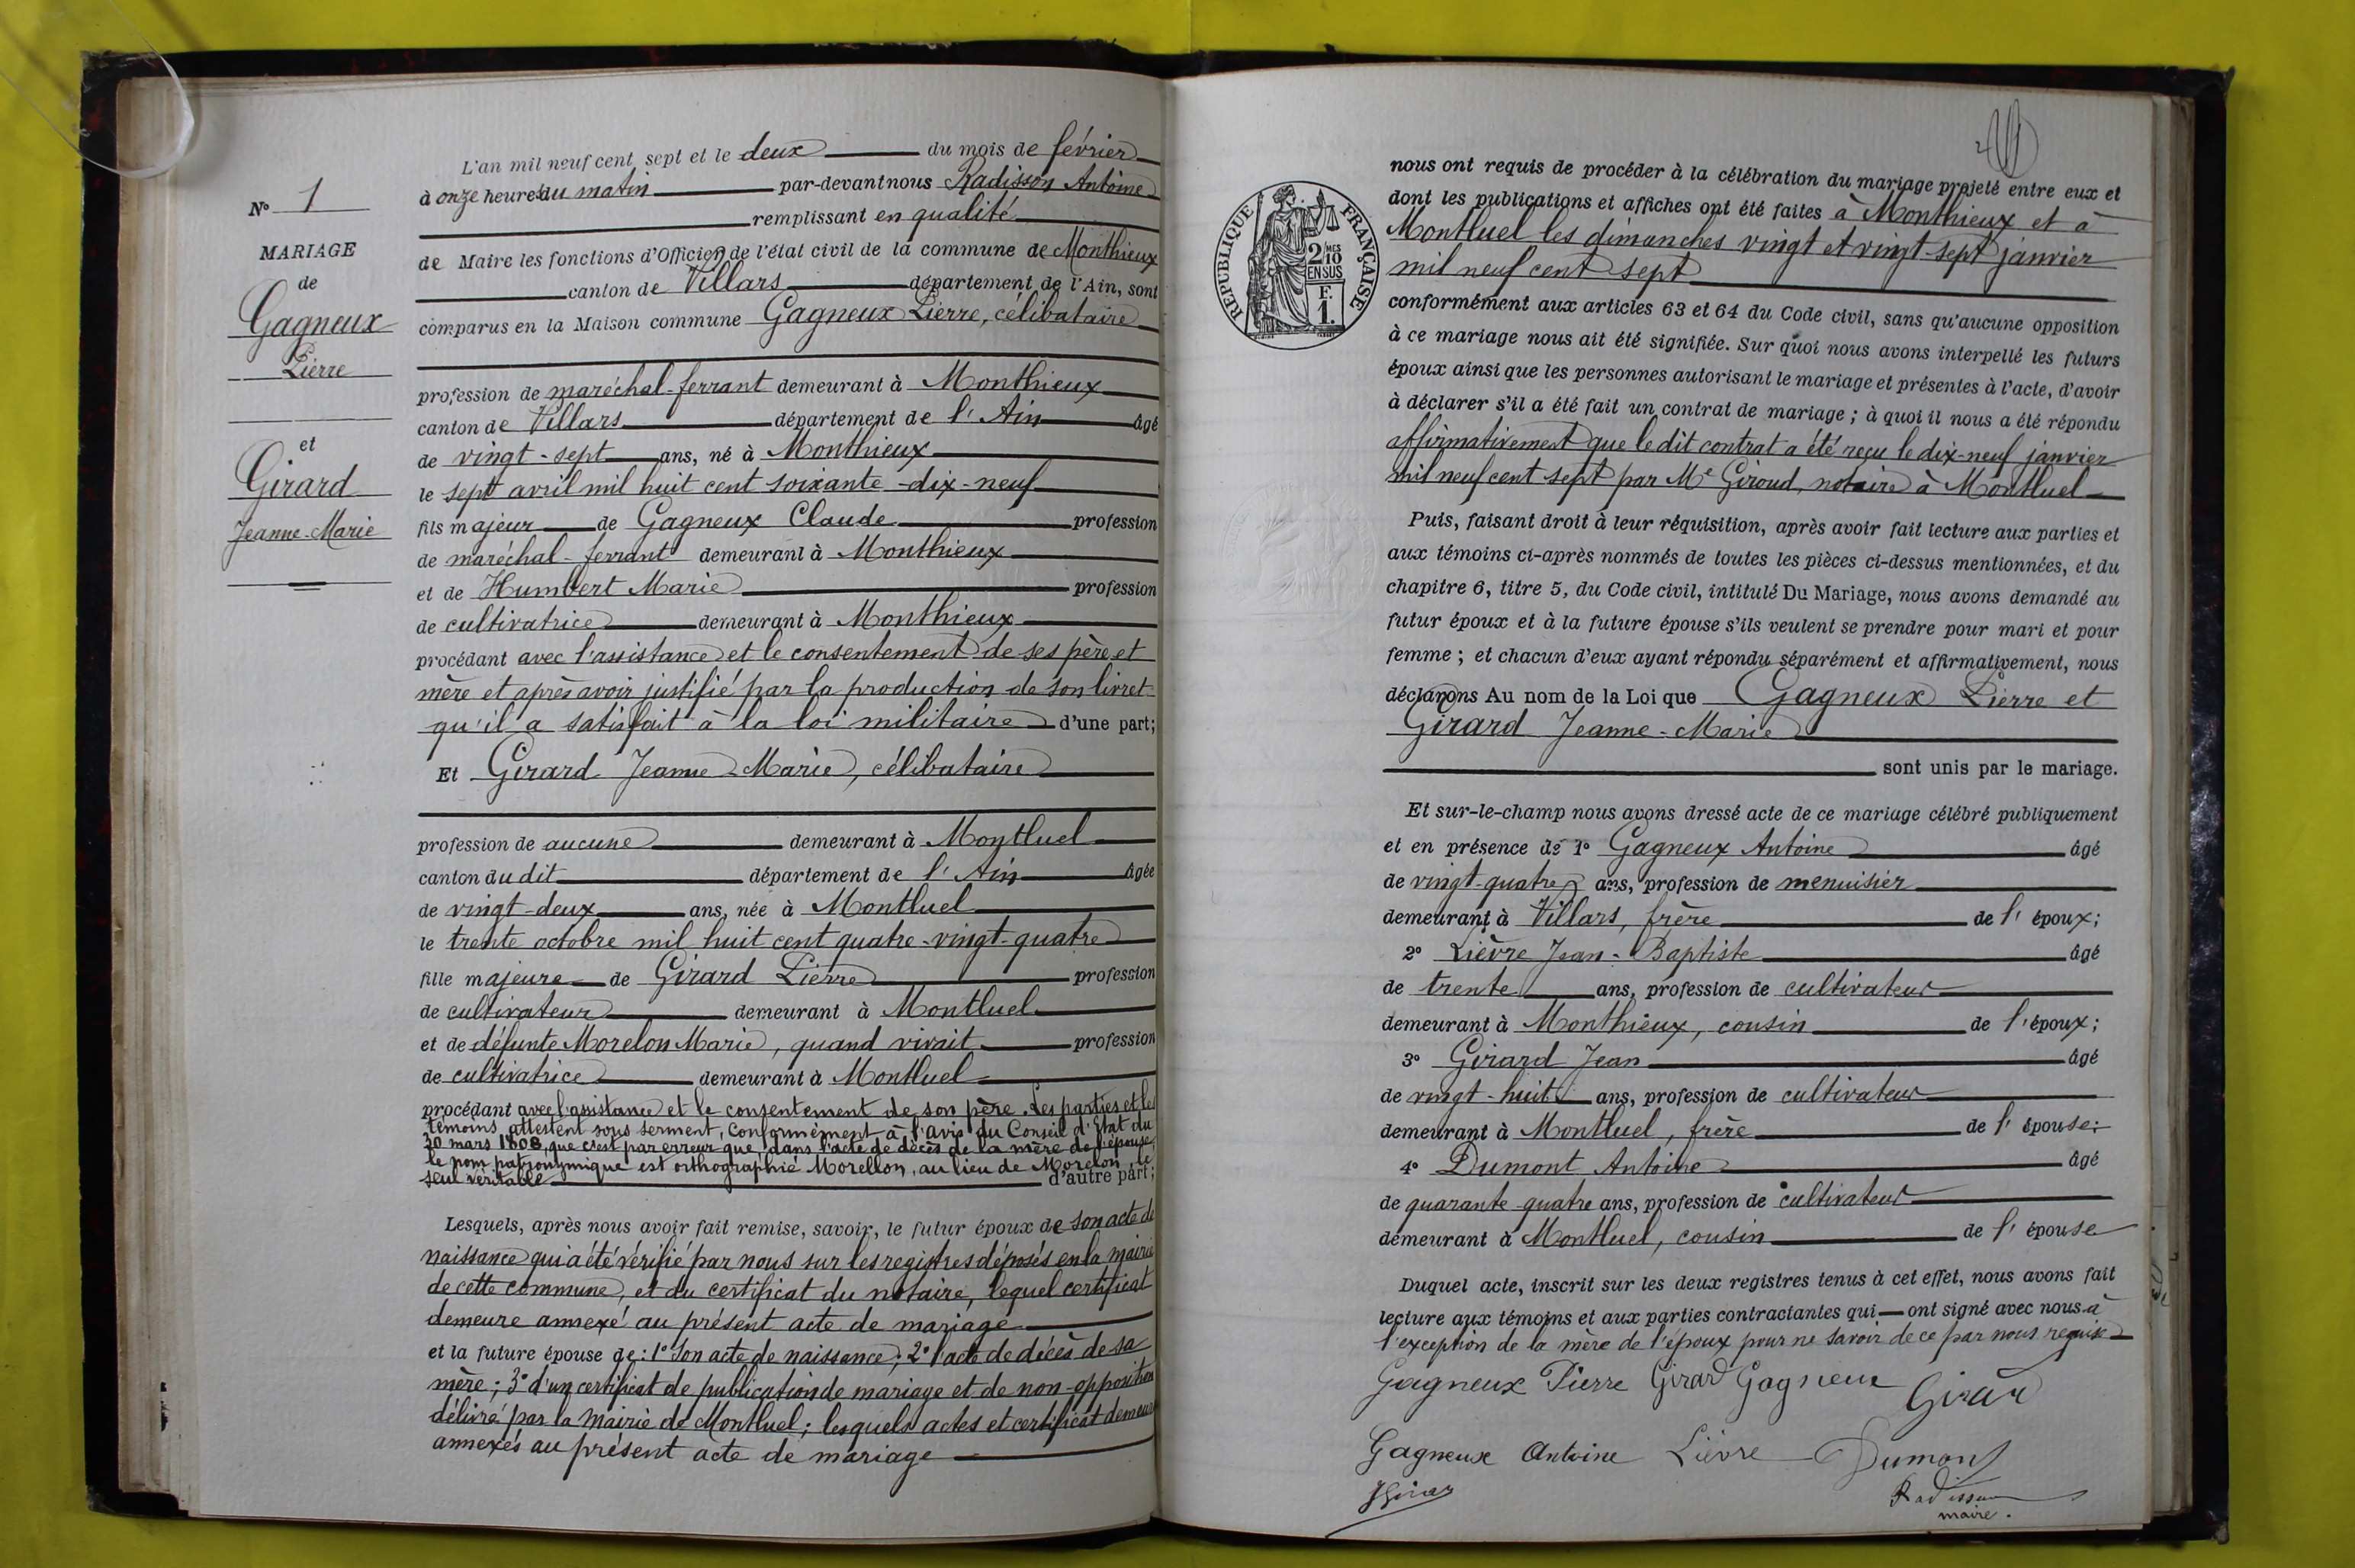 L'an mil neuf cent sept et le deux du mois de février
à onze heures du matin par-devant nous Radisson Antoine
remplissant en qualité
de Maire les fonctions d'Officier de l'état civil de la commune de Monthieux
canton de Villars département de l'Ain, sont
comparus en la Maison commune Gagneux Pierre, célibataire
profession de maréchal-ferrant demeurant à Monthieux
canton de Villars département de l'Ain âgé
de vingt-sept ans, né à Monthieux
le sept avril mil huit cent soixante-dix-neuf
fils majeur de Gagneux Claude profession
de maréchal-ferrant demeurant à Monthieux
et de Humbert Marie profession
de cultivatrice demeurant à Monthieux
procédant avec l'assistance et le consentement de ses père et
mère et après avoir justifié par la production de son livret
qu'il a satisfait à la loi militaire d'une part;
Et Girard Jeanne-Marie, célibataire
profession de aucune demeurant à Montluel
canton du dit département de l'Ain âgée
de vingt-deux ans, née à Montluel
le trente octobre mil huit cent quatre-vingt-quatre
fille majeure de Girard Pierre profession
de cultivateur demeurant à Montluel
et de défunte Morelon Marie, quand vivait profession
de cultivatrice demeurant à Montluel
procédant avec l'assistance et le consentement de son père. Les parties et les
témoins attestent sous serment, conformément à l'avis du Conseil d'Etat du
30 mars 1808, que c'est par erreur que, dans l'acte de décès de la mère de l'épouse,
le nom patronymique est orthographié Morellon, au lieu de Morelon, le
seul véritable d'autre part;
Lesquels, après nous avoir fait remise, savoir, le futur époux de son acte de
naissance qui a été vérifié par nous sur les registres déposés en la mairie
de cette commune, et du certificat du notaire, lequel certificat
demeure annexé au présent acte de mariage
et la future épouse de: 1° Son acte de naissance; 2° l'acte de décès de sa
mère; 3° d'un certificat de publication de mariage et de non-opposition
délivré par la Mairie de Montluel; lesquels actes et certificat demeurent
annexés au présent acte de mariage
N° 1
MARIAGE
de
Gagneux
Pierre
et
Girard
Jeanne-Marie
nous ont requis de procéder à la célébration du mariage projeté entre eux et
dont les publications et affiches ont été faites à Monthieux et à
Montluel les dimanches vingt et vingt-sept janvier
mil neuf cent sept
conformément aux articles 63 et 64 du Code civil, sans qu'aucune opposition
à ce mariage nous ait été signifiée. Sur quoi nous avons interpellé les futurs
époux ainsi que les personnes autorisant le mariage et présentes à l'acte, d'avoir
à déclarer s'il a été fait un contrat de mariage; à quoi il nous a été répondu
affirmativement que le dit contrat a été reçu le dix-neuf janvier
mil neuf cent sept par Me Giroud, notaire à Montluel
Puis, faisant droit à leur réquisition, après avoir fait lecture aux parties et
aux témoins ci-après nommés de toutes les pièces ci-dessus mentionnées, et du
chapitre 6, titre 5, du Code civil, intitulé Du Mariage, nous avons demandé au
futur époux et à la future épouse s'ils veulent se prendre pour mari et pour
femme; et chacun d'eux ayant répondu séparément et affirmativement, nous
déclarons Au nom de la Loi que Gagneux Pierre et
Girard Jeanne-Marie
sont unis par le mariage.
Et sur-le-champ nous avons dressé acte de ce mariage célébré publiquement
et en présence de 1° Gagneux Antoine âgé
de vingt-quatre ans, profession de menuisier
demeurant à Villars, frère de l'époux;
2° Lièvre Jean-Baptiste âgé
de trente ans, profession de cultivateur
demeurant à Monthieux, cousin de l'époux;
3° Girard Jean âgé
de vingt-huit ans, profession de cultivateur
demeurant à Montluel, frère de l'épouse;
4° Dumont Antoine âgé
de quarante-quatre ans, profession de cultivateur
demeurant à Montluel, cousin de l'épouse
Duquel acte, inscrit sur les deux registres tenus à cet effet, nous avons fait
lecture aux témoins et aux parties contractantes qui ont signé avec nous à
l'exception de la mère de l'époux pour ne savoir de ce par nous requise
Gagneux Pierre Girard Gagneux Girard
Gagneux Antoine Lièvre Dumont
Radisson
maire.
RÉPUBLIQUE FRANÇAISE
2 MES
10
EN SUS
F.
1.